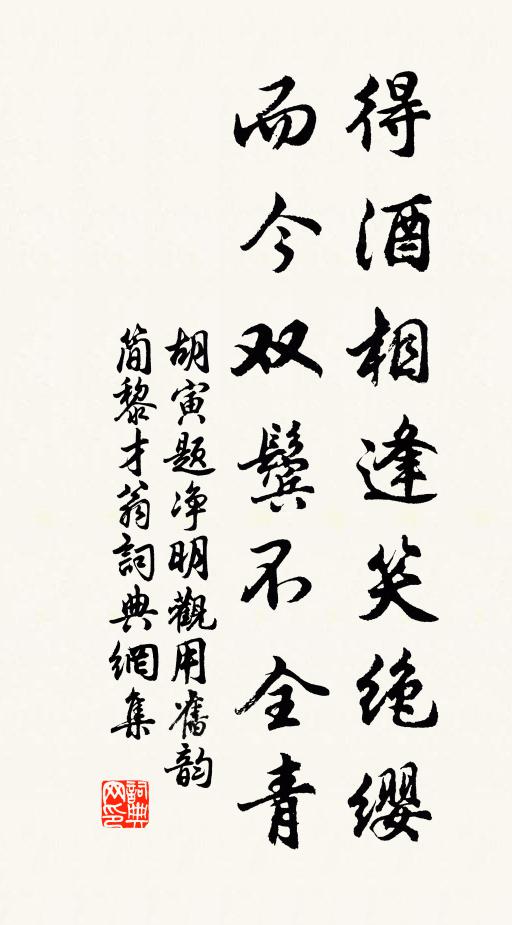 得酒相逢笑绝缨
而今双鬓不全青
胡寅题净明觀用舊韵
简黎才翁詞典網集
詞典网印